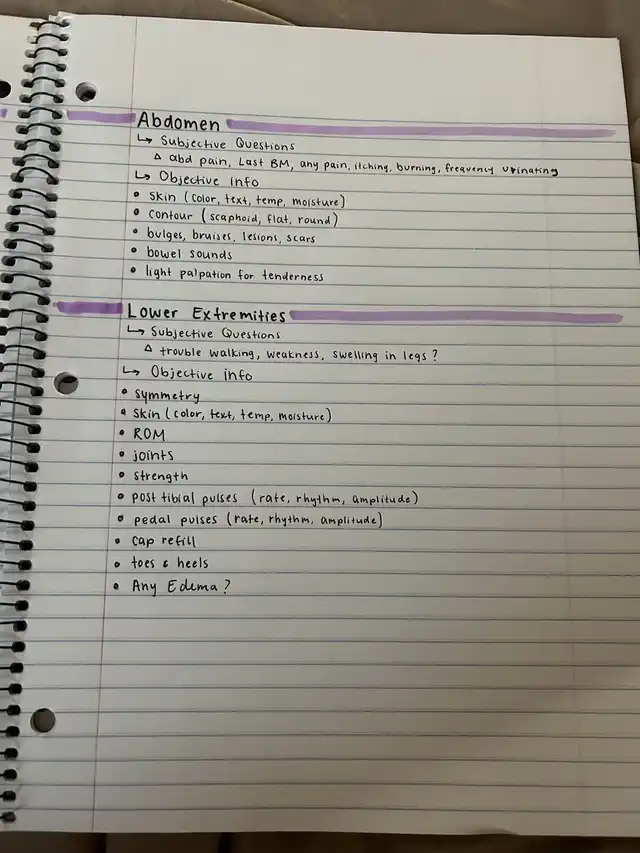 Abdomen
↳ Subjective Questions
△ abd pain, Last BM, any pain, itching, burning, frequency urinating
↳ Objective info
• Skin (color, text, temp, moisture)
• contour (scaphoid, flat, round)
• bulges, bruises, lesions, scars
• bowel sounds
• light palpation for tenderness
Lower Extremities
↳ Subjective Questions
△ trouble walking, weakness, swelling in legs?
↳ Objective info
• symmetry
• Skin (color, text, temp, moisture)
• ROM
• joints
• strength
• post tibial pulses (rate, rhythm, amplitude)
• pedal pulses (rate, rhythm, amplitude)
• cap refill
• toes & heels
• Any Edema?